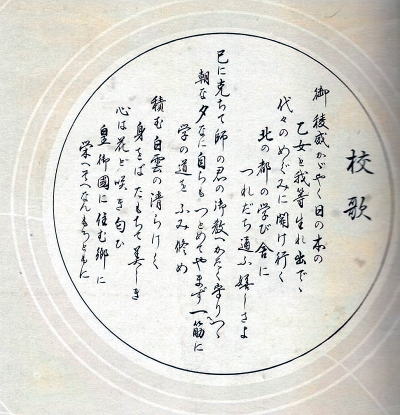 校歌
御稜威かゞやく日の本の
乙女と我等生れ出でゝ
代々のめぐみに開け行く
北の都の学び舎に
つれだち通ふ嬉しさよ
己に克ちて師の君の御教へかたく守りつゝ
朝な夕なに自らも つとめてやまず一筋に
学の道をふみ修め
積む白雲の清らけく
身をば たもちて美しき
心は花と咲き匂ひ
皇御國に住む郷に
栄へそへなんもろともに